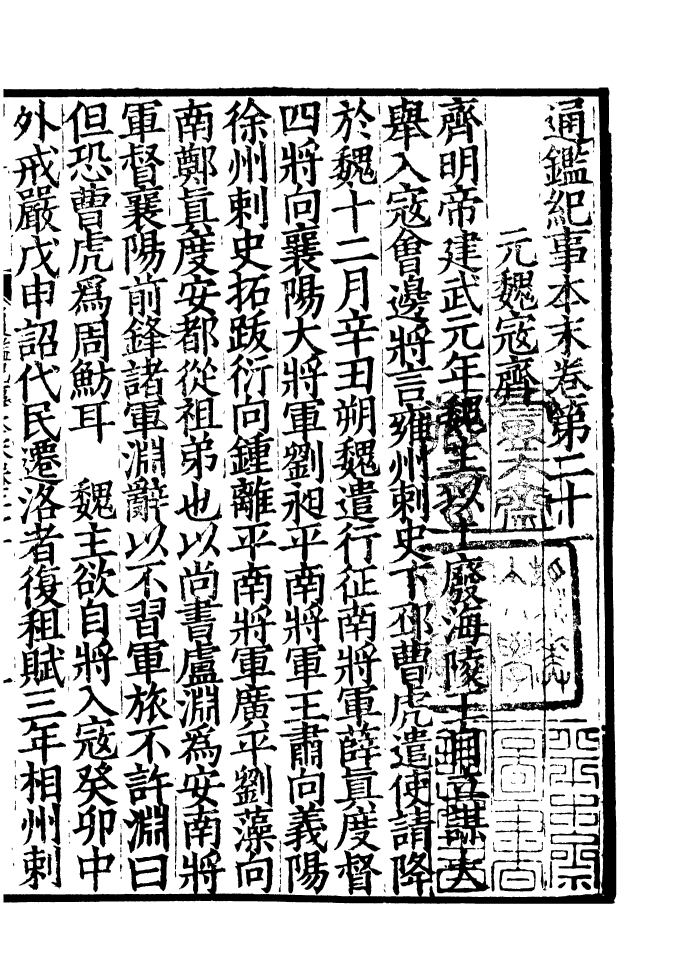 通鑑紀事本末卷第二十
元魏寇齊
齊明帝建武元年魏主以上廢海陵王自立謀大
舉入寇會邊將言雍州刺史下邳曹虎遣使請降
於魏十二月辛丑朔魏遣行征南將軍薛眞度督
四將向襄陽大將軍劉昶平南將軍王肅向義陽
徐州刺史拓跋衍向鍾離平南將軍廣平劉藻向
南鄭眞度安都從祖弟也以尚書盧淵爲安南將
軍督襄陽前鋒諸軍淵辭以不習軍旅不許淵曰
但恐曹虎爲周魴耳　魏主欲自將入寇癸卯中
外戒嚴戊申詔代民遷洛者復租賦三年相州刺